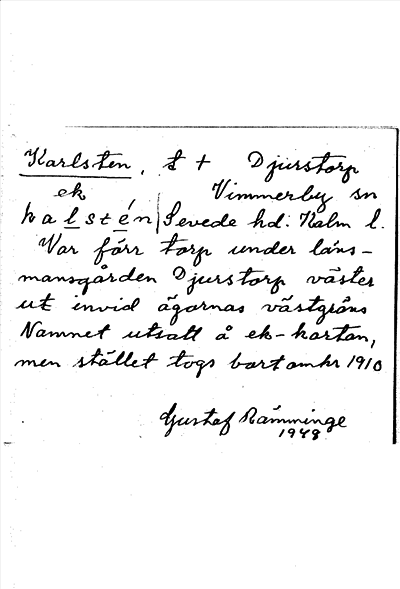 Karlsten, t + Djurstorp
ek Vimmerby sn
kalstén Sevede hd. Kalm l.
Var förr torp under läns-
mansgården Djurstorp väster
ut invid ägornas västgräns
Namnet utsatt å ek-kartan,
men stället togs bort omkr 1910
Gustaf Rämminge
1948